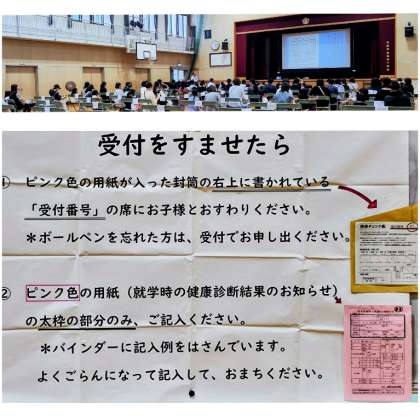 受付をすませたら
① ピンク色の用紙が入った封筒の右上に書かれている
「受付番号」の席にお子様とおすわりください。
＊ボールペンを忘れた方は、受付でお申し出ください。
② ピンク色の用紙（就学時の健康診断結果のお知らせ）
の太枠の部分のみ、ご記入ください。
＊バインダーに記入例をはさんでいます。
よくごらんになって記入して、おまちください。